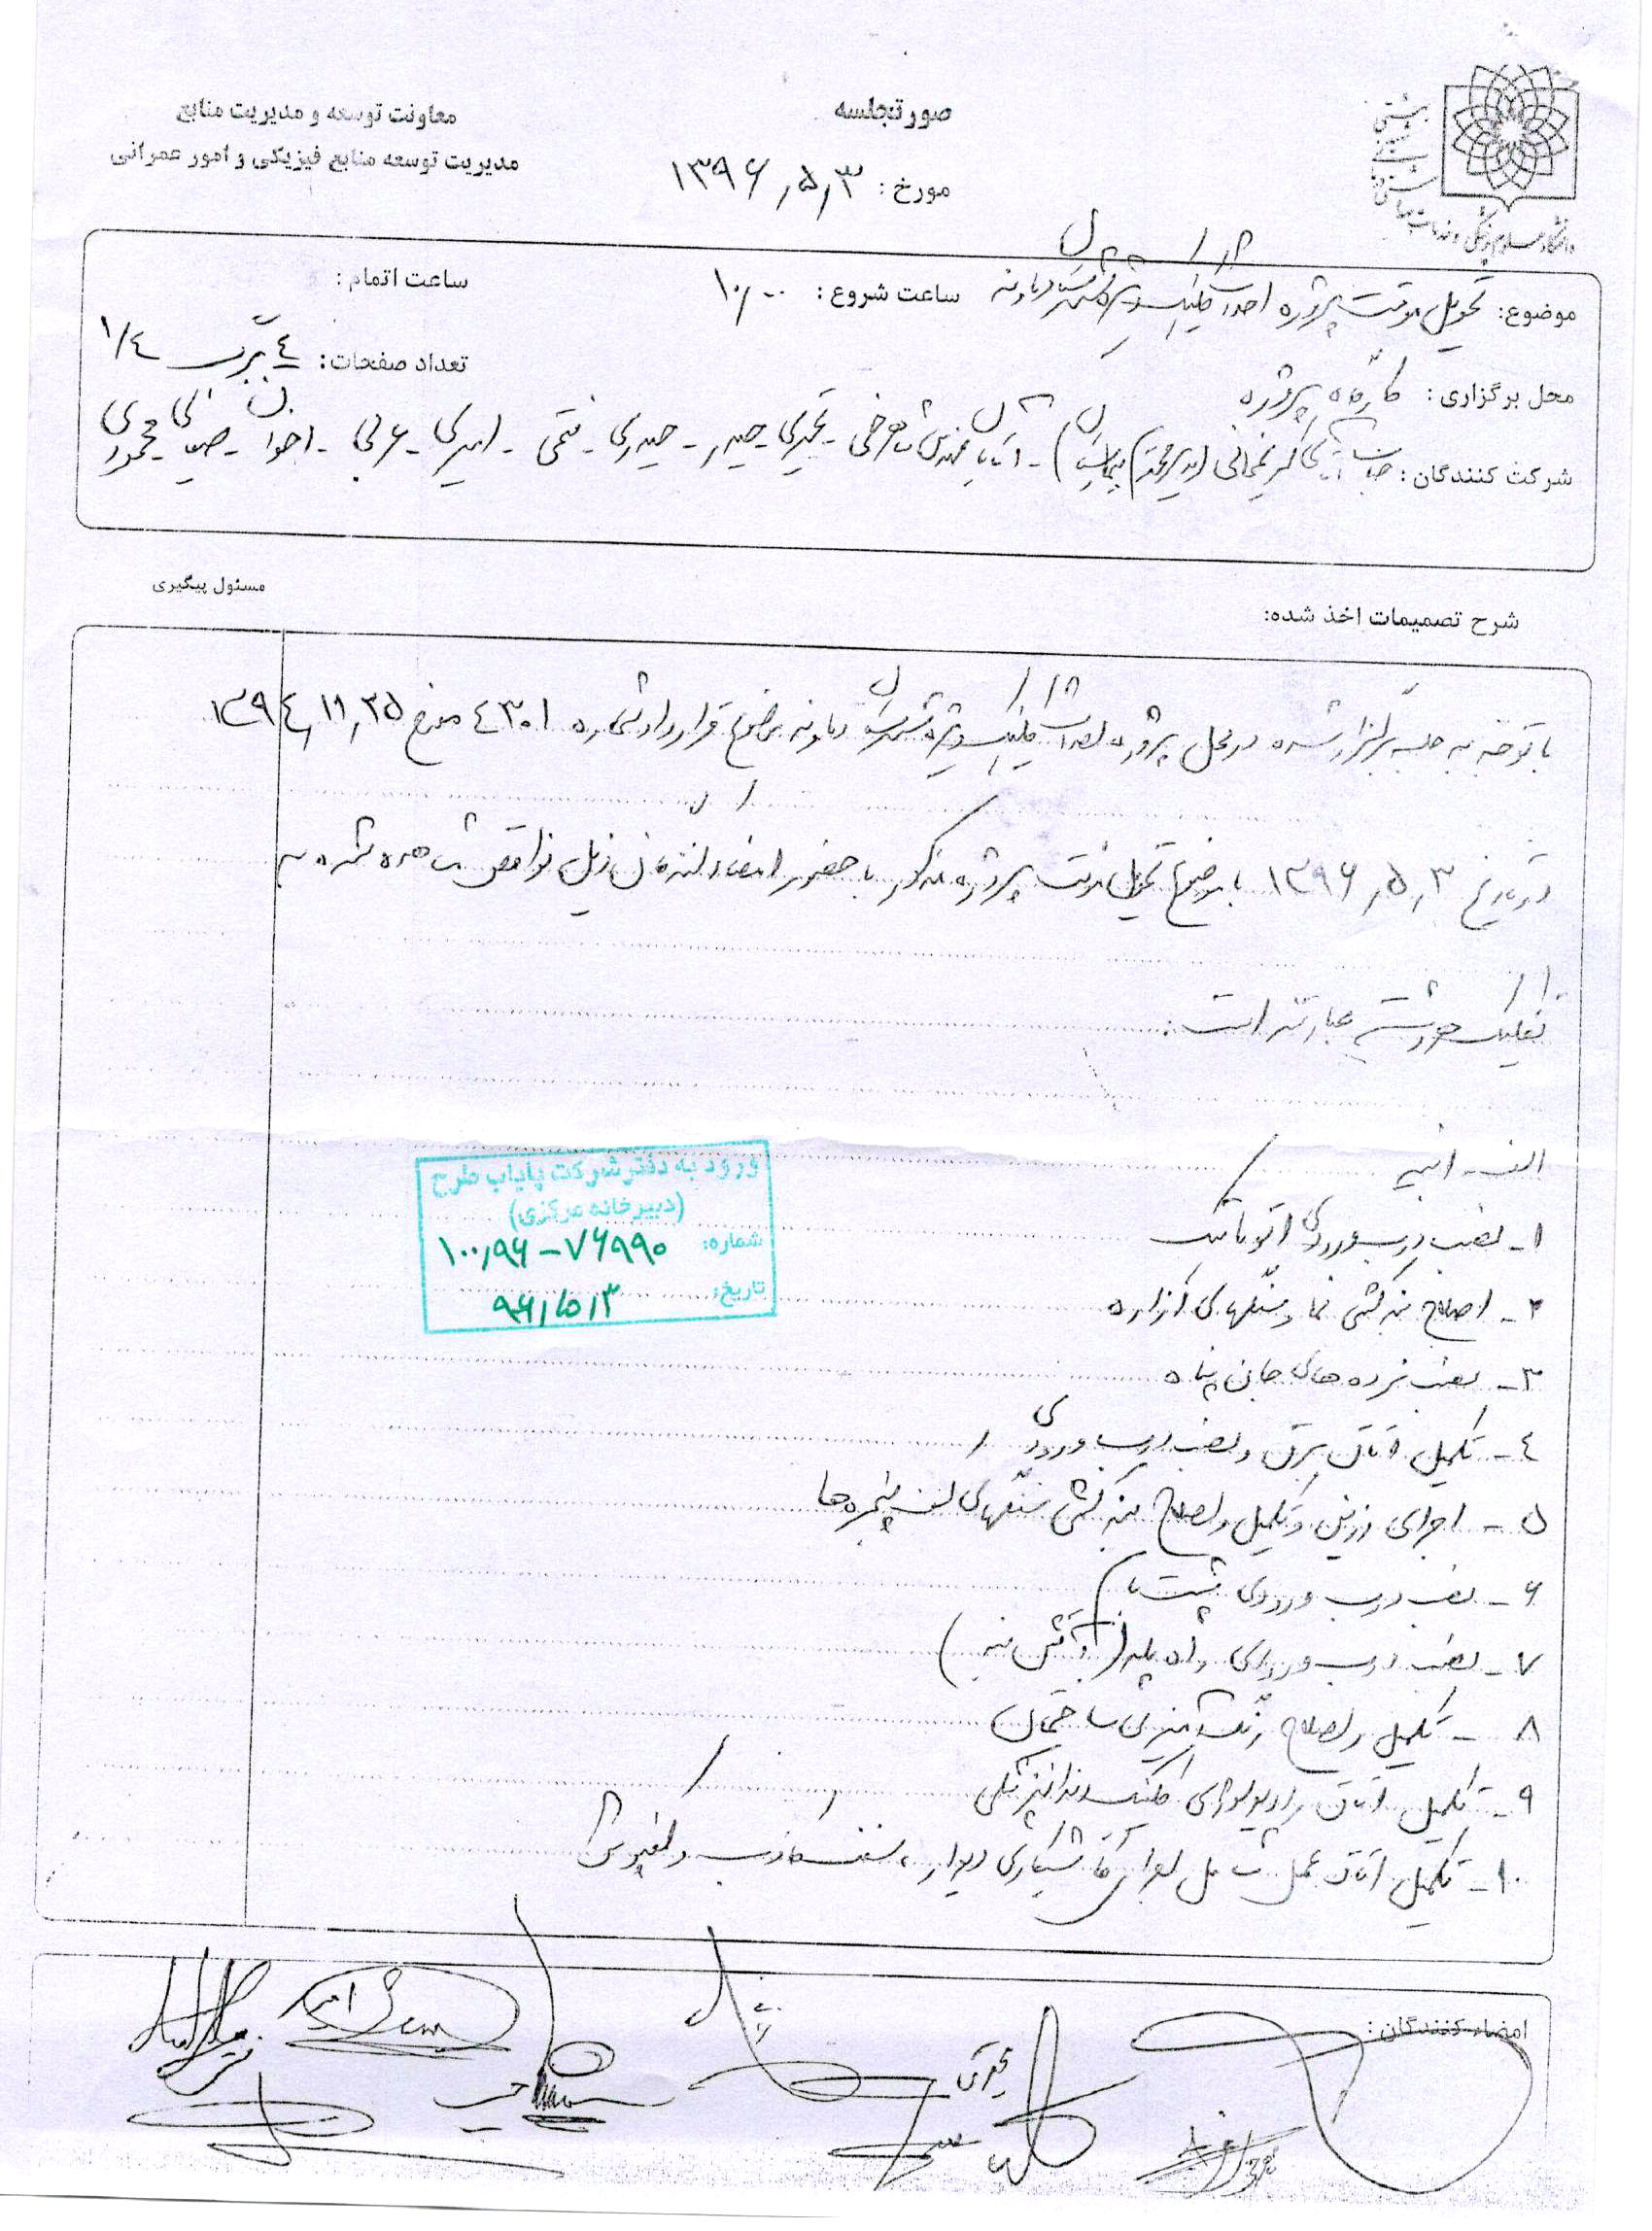 صورتجلسه
معاونت توسعه و مدیریت منابع
مدیریت توسعه منابع فیزیکی و امور عمرانی
مورخ : ۱۳۹۶,۵,۳
دانشگاه علوم پزشکی و خدمات بهداشتی درمانی شهید بهشتی
موضوع: تحویل موقت پروژه احداث کلینیک ویژه بیمارستان دماوند
ساعت شروع : ۱۰,۰۰
ساعت اتمام :
محل برگزاری : کارگاه پروژه
تعداد صفحات: ٤ برگ ۱/٤
شرکت کنندگان : جناب آقای (مدیر محترم بیمارستان) - آقایان مهندس - حیدری - - عربی - اخوان - محمودی
شرح تصمیمات اخذ شده:
مسئول پیگیری
با توجه به جلسه برگزار شده در محل پروژه احداث کلینیک ویژه دماوند موضوع قرارداد شماره ٤۳۰۱ مورخ ۱۳۹٤,۱۱,۲۵
در تاریخ ۱۳۹۶,۵,۳ با موضوع تحویل موقت پروژه مذکور با حضور امضاء کنندگان ذیل نواقص مشاهده شده به
تفکیک هر رشته عبارتند از :
الف - ابنیه
۱- نصب درب ورودی اتوماتیک
۲- اصلاح بندکشی نما و سنگهای ازاره
۳- نصب نرده های جان پناه
٤- تکمیل اتاق برق و نصب درب ورودی
۵- اجرای درزبندی و تکمیل و اصلاح بندکشی سنگهای کف پنجره ها
۶- نصب درب ورودی پشت بام
۷- نصب درب ورودی راه پله (آتش نشانی)
۸- تکمیل و اصلاح رنگ آمیزی ساختمان
۹- تکمیل اتاق رادیولوژی کلینیک دندانپزشکی
۱۰- تکمیل اتاق عمل شامل اجرای کاشیکاری دیوار، سقف کاذب و کفپوش
ورود به دفتر شرکت پایاب طرح
(دبیرخانه مرکزی)
شماره: ۱۰۰٫۹۶-۷۶۹۹۰
تاریخ: ۹۶/۰۵/۳
امضاء کنندگان :